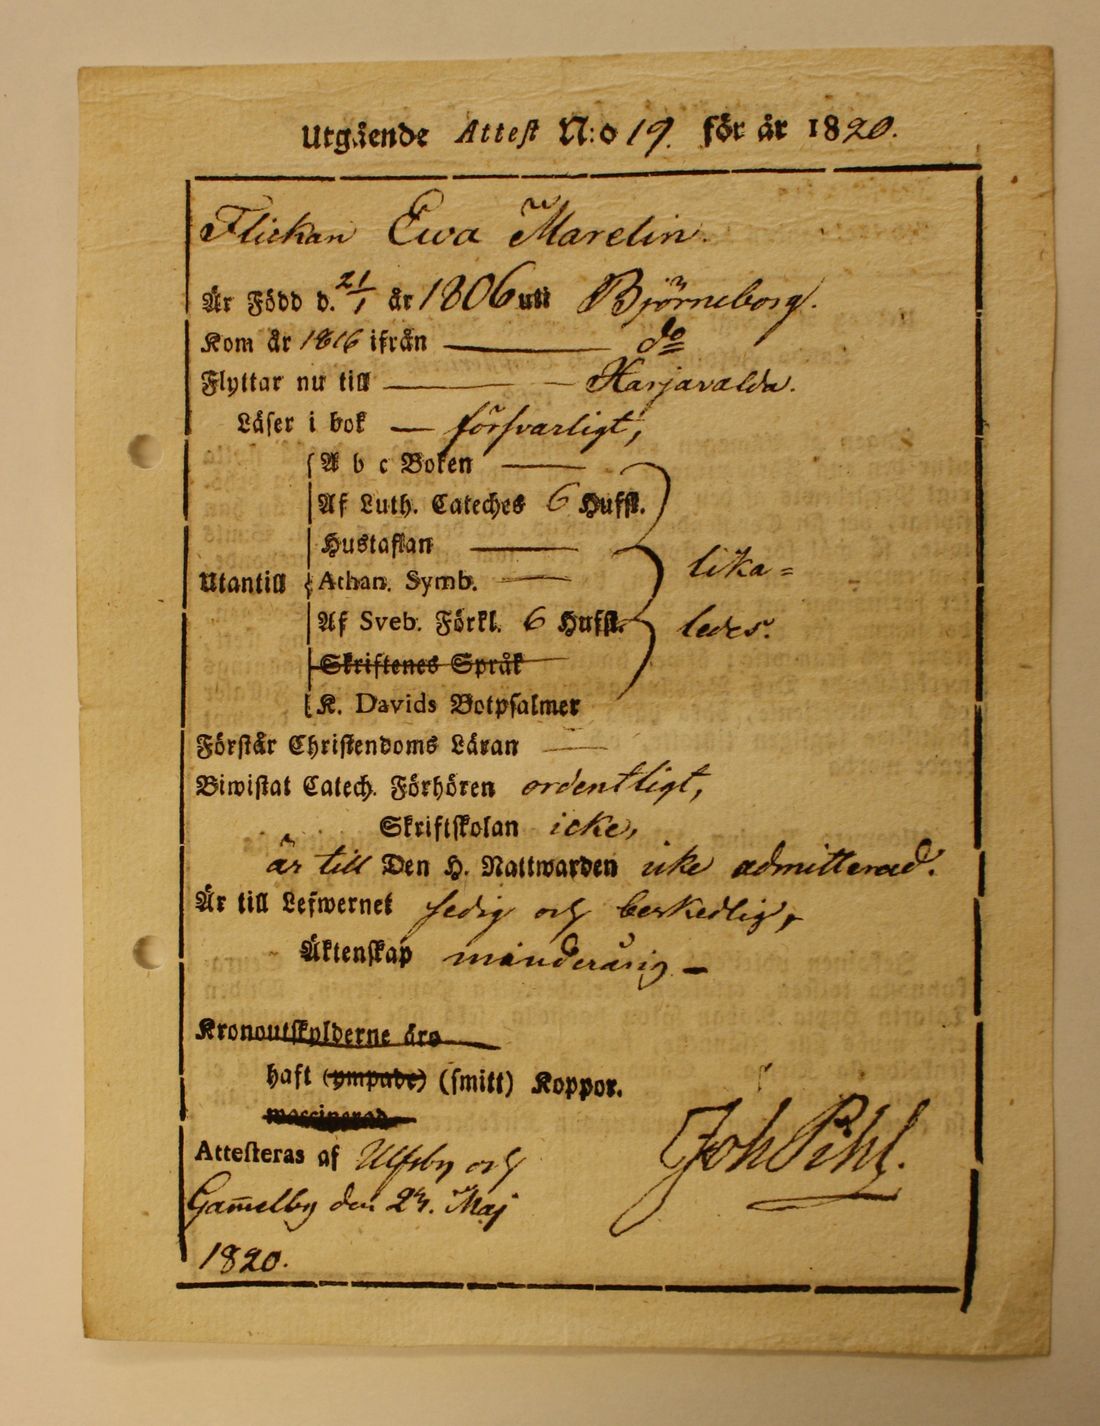 Utgående Attest N:o 19. för år 1820.
Flickan Ewa Marelin.
Är Född d. 21/1 år 1806 uti Björneborg.
Kom år 1816 ifrån — do
Flyttar nu till — Harjavalda.
Läser i bok — försvarligt,
A b c Boken —
Af Luth. Cateches 6 Hufst.
Hustaflan —
Utantill Athan. Symb. — lika=
Af Sveb. Förkl. 6 Hufst. ledes.
Skriftenes Språk
K. Davids Botpsalmer
Förstår Christendoms Läran —
Biwistat Catech. Förhören ordentligt,
Skriftskolan icke,
är till Den H. Nattwarden icke admitterad.
Är till Lefwernet sedig och beskedlig,
Äktenskap minderårig —
Kronoutskylderne äro
haft (ympade) (smitt) Koppor.
waccinerad
Attesteras af Ulfsby och Joh Pihl.
Gam̅elby den Maj
1820.